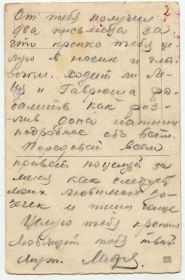 2
От тебя получил
два письмеца за
что крепко тебя це-
лую в носик и гла-
зоньки. Ходит ли М-
и Гаврюша
как
Дона напиши
подробнее обо всем.
Передавай всем
привет поцелуй за
меня как следует
моих любимых до-
чечек и пиши чаще
Целую тебя крепко
Любящий тебя твой